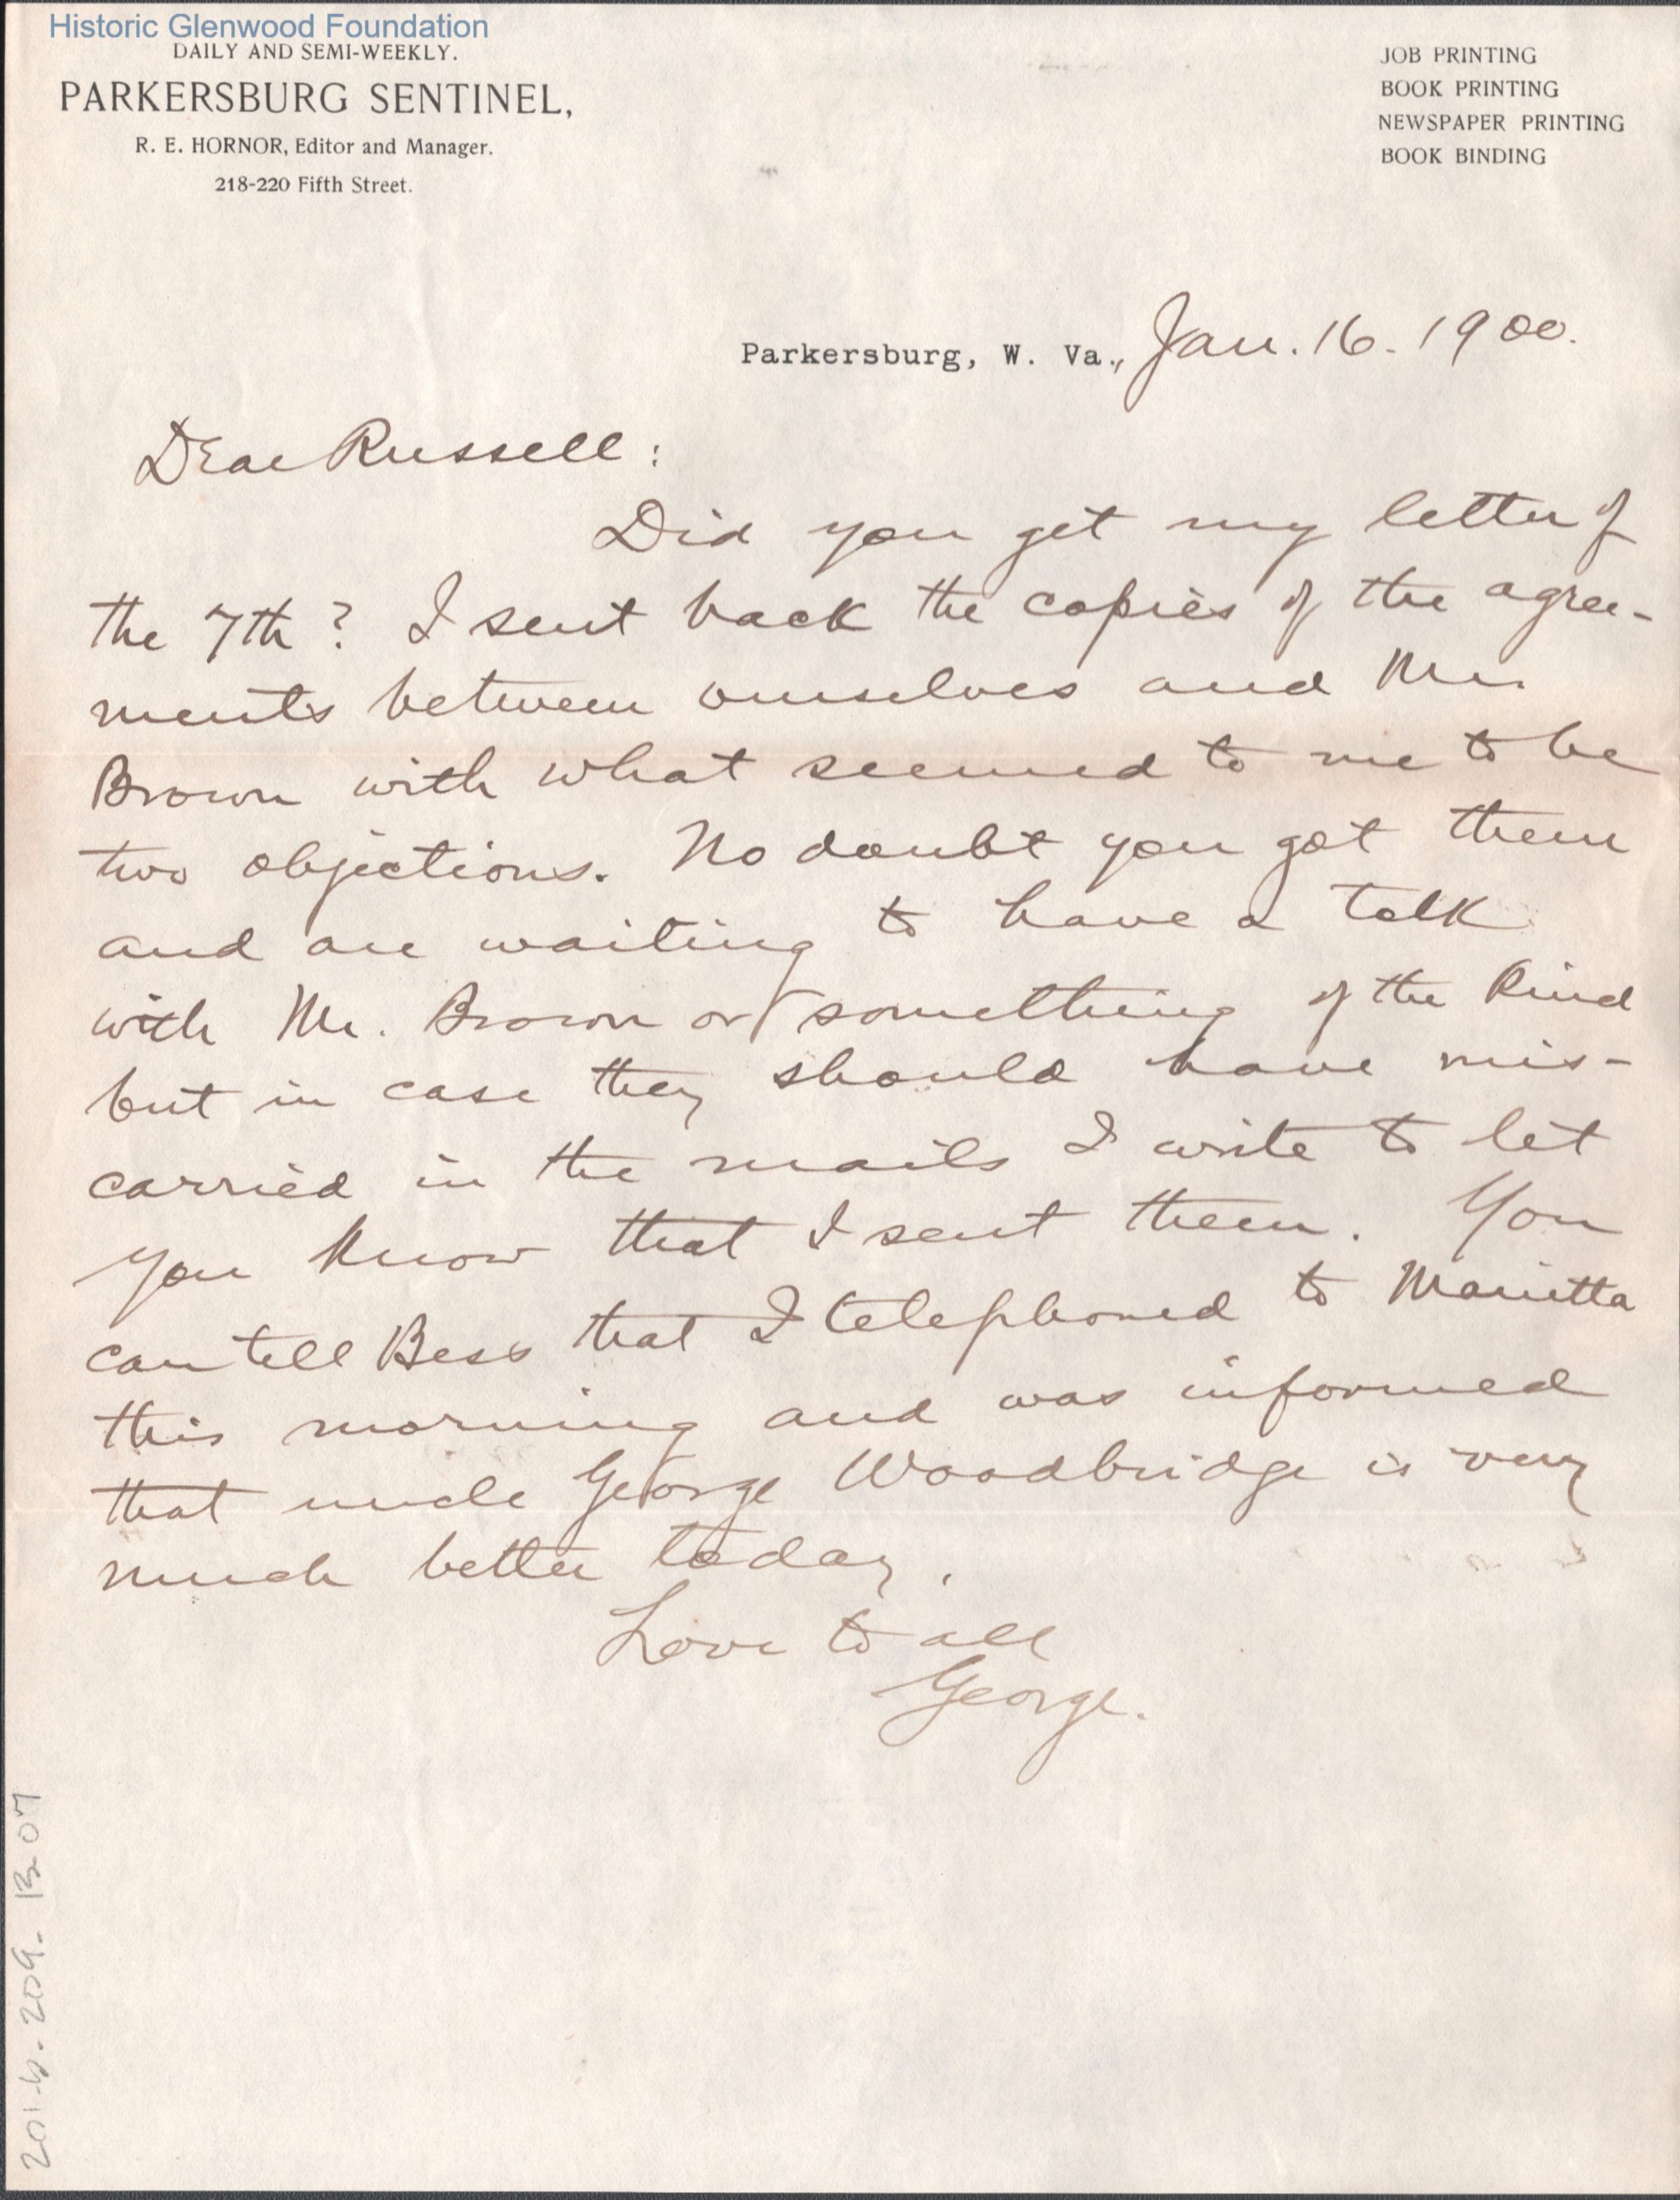 Historic Glenwood Foundation
DAILY AND SEMI-WEEKLY.
PARKERSBURG SENTINEL,
R. E. HORNOR, Editor and Manager.
218-220 Fifth Street.
JOB PRINTING
BOOK PRINTING
NEWSPAPER PRINTING
BOOK BINDING
Parkersburg, W. Va., Jan. 16. 1900.
Dear Russell:
Did you get my letter of
the 7th? I sent back the copies of the agree-
ments between ourselves and Mr.
Brown with what seemed to me to be
two objections. No doubt you got them
and are waiting to have a talk
with Mr. Brown or something of the kind
but in case they should have mis-
carried in the mails I write to let
you know that I sent them. You
can tell Bess that I telephoned to Marietta
this morning and was informed
that uncle George Woodbridge is very
much better today.
Love to all
George.